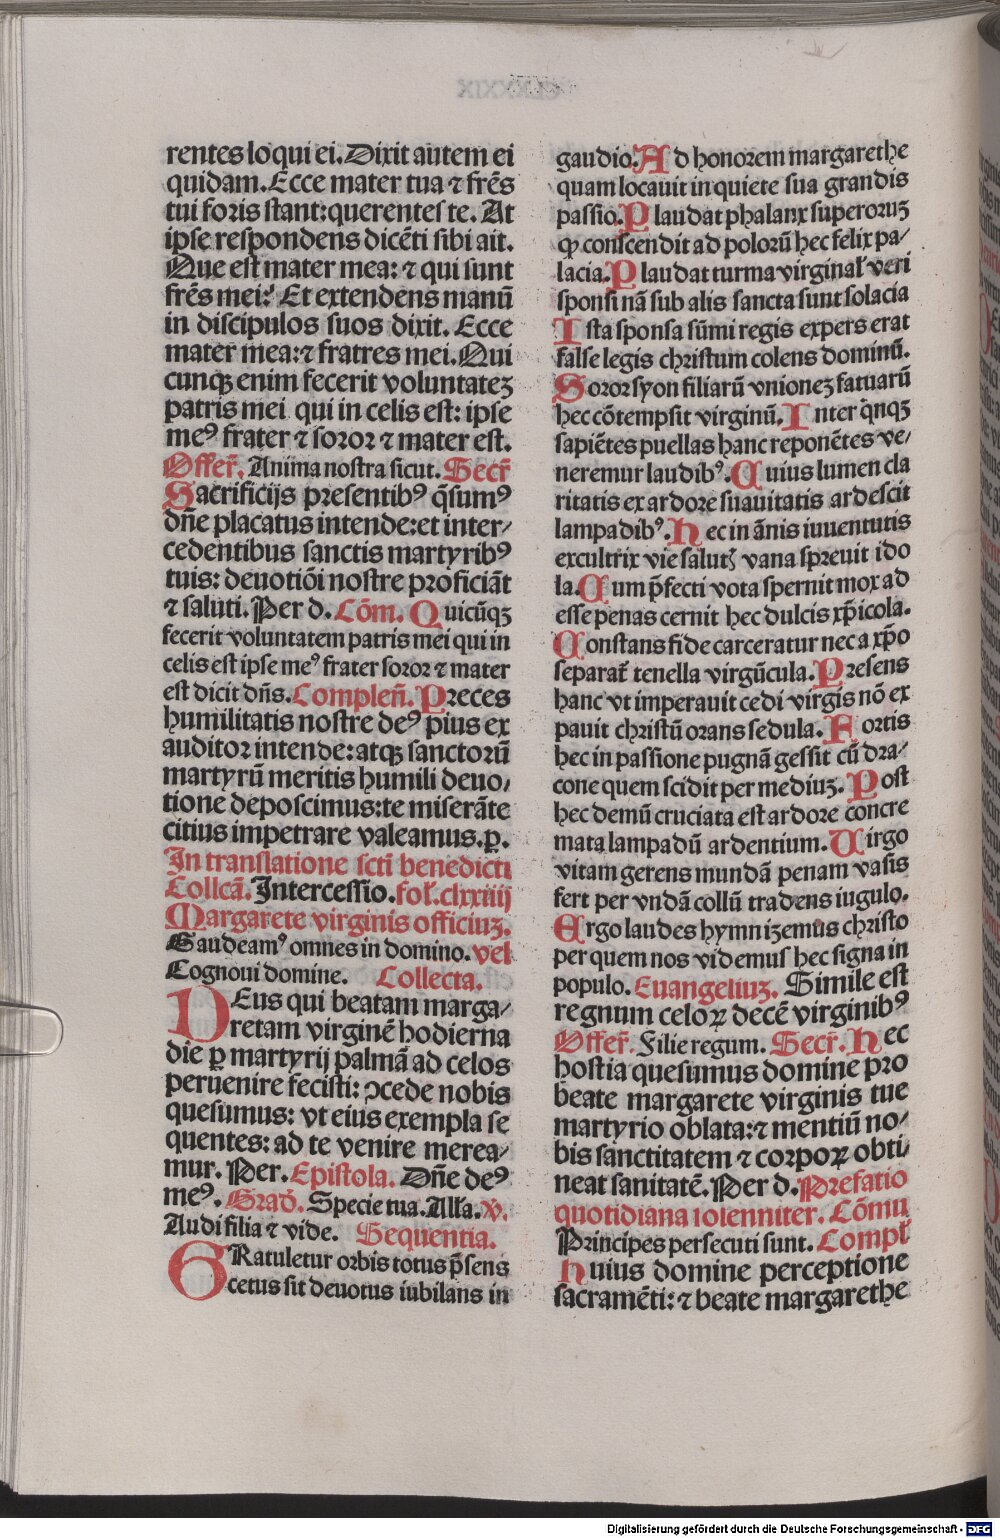 rentes loqui ei. Dixit autem ei
quidam. Ecce mater tua ⁊ fr̃es
tui foris stant: querentes te. At
ipse respondens dicẽti sibi ait.
Que est mater mea: ⁊ qui sunt
fr̃es mei: Et extendens manũ
in discipulos suos dixit. Ecce
mater mea: ⁊ fratres mei. Qui
cunqꝫ enim fecerit voluntateꝫ
patris mei qui in celis est: ipse
meꝰ frater ⁊ soror ⁊ mater est.
Offer̃. Anima nostra sicut. Secr̃
Sacrificijs presentibꝰ q̃sumꝰ
dñe placatus intende: et inter⸗
cedentibus sanctis martyribꝰ
tuis: deuotiõi nostre proficiãt
⁊ saluti. Per d. Cõm. Quicũqꝫ
fecerit voluntatem patris mei qui in
celis est ipse meꝰ frater soror ⁊ mater
est dicit dñs. Compleñ. Preces
humilitatis nostre deꝰ pius ex
auditor intende: atqꝫ sanctorũ
martyrũ meritis humili deuo⸗
tione deposcimus: te miserãte
citius impetrare valeamus. ꝑ.
In translatione scti benedicti
Collcã. Intercessio. fol. clxxiiij
Margarete virginis officiuꝫ.
Gaudeamꝰ omnes in domino. vel
Cognoui domine. Collecta.
DEus qui beatam marga⸗
retam virginẽ hodierna
die ꝑ martyrij palmã ad celos
peruenire fecisti: ↄcede nobis
quesumus: vt eius exempla se
quentes: ad te venire merea⸗
mur. Per. Epistola. Dñe deꝰ
meꝰ. Grad̃. Specie tua. Alla. v̾.
Audi filia ⁊ vide. Sequentia.
GRatuletur orbis totus p̃sens
cetus sit deuotus iubilans in
gaudio. Ad honorem margarethe
quam locauit in quiete sua grandis
passio. Plaudat phalanx superoruꝫ
ꝙ conscendit ad polorũ hec felix pa⸗
lacia. Plaudat turma virginal̕ veri
sponsi nã sub alis sancta sunt solacia
Ista sponsa sũmi regis expers erat
false legis christum colens dominũ.
Soror syon filiarũ vnioneꝫ fatuarũ
hec cõtempsit virginũ. Inter q̃nqꝫ
sapiẽtes puellas hanc reponẽtes ve⸗
neremur laudibꝰ. Cuius lumen cla
ritatis ex ardore suauitatis ardescit
lampadibꝰ. Hec in ãnis iuuentutis
excultrix vie salutꝭ vana spreuit ido
la. Cum p̃fecti vota spernit mox ad
esse penas cernit hec dulcis xp̃icola.
Constans fide carceratur nec a xp̃o
separat̃ tenella virgũcula. Presens
hanc vt imperauit cedi virgis nõ ex
pauit christũ orans sedula. Fortis
hec in passione pugnã gessit cũ dra⸗
cone quem scidit per mediuꝫ. Post
hec demũ cruciata est ardore concre
mata lampadũ ardentium. Virgo
vitam gerens mundã penam vasis
fert per vndã collũ tradens iugulo.
Ergo laudes hymniꝫemus christo
per quem nos videmus hec signa in
populo. Euangeliuꝫ. Simile est
regnum celoꝝ decẽ virginibꝰ
Offer̃. Filie regum. Secr̃. Hec
hostia quesumus domine pro
beate margarete virginis tue
martyrio oblata: ⁊ mentiũ no⸗
bis sanctitatem ⁊ corpoꝝ obti⸗
neat sanitatẽ. Per d. Prefatio
quotidiana solenniter. Cõmu
Principes persecuti sunt. Compl̕
Huius domine perceptione
sacramẽti: ⁊ beate margarethe
Digitalisierung gefördert durch die Deutsche Forschungsgemeinschaft - DFG